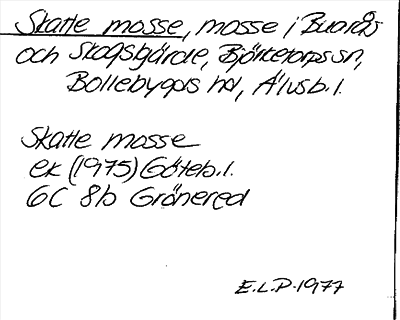 Skatte mosse, mosse i Buarås
och Skogsgärde, Björketorps sn,
Bollebygds hd, Älvsb. l.
Skatte mosse
ek (1975) Göteb. l.
6C 8b Grönered
E.L.P. 1977